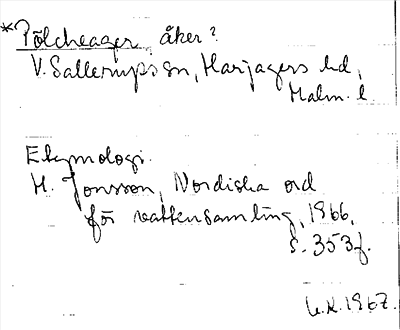 *Pölcheager, åker?
V. Sallerups sn, Harjagers hd,
Malm. l.
Etymologi.
H. Jonsson, Nordiska ord
för vattensamling, 1966,
s. 353f.
1967.